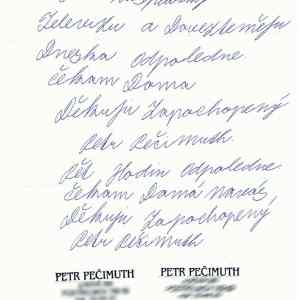 Televizu a Dovezte měju
Dneska odpoledne
čekám Doma
Děkuju Zapochopený
Petr Pečimuth.
Pět Hodin odpoledne
čekám Domá Na vás
Děkuju Zapochopený
Petr Pečimuth
PETR PEČIMUTH PETR PEČIMUTH